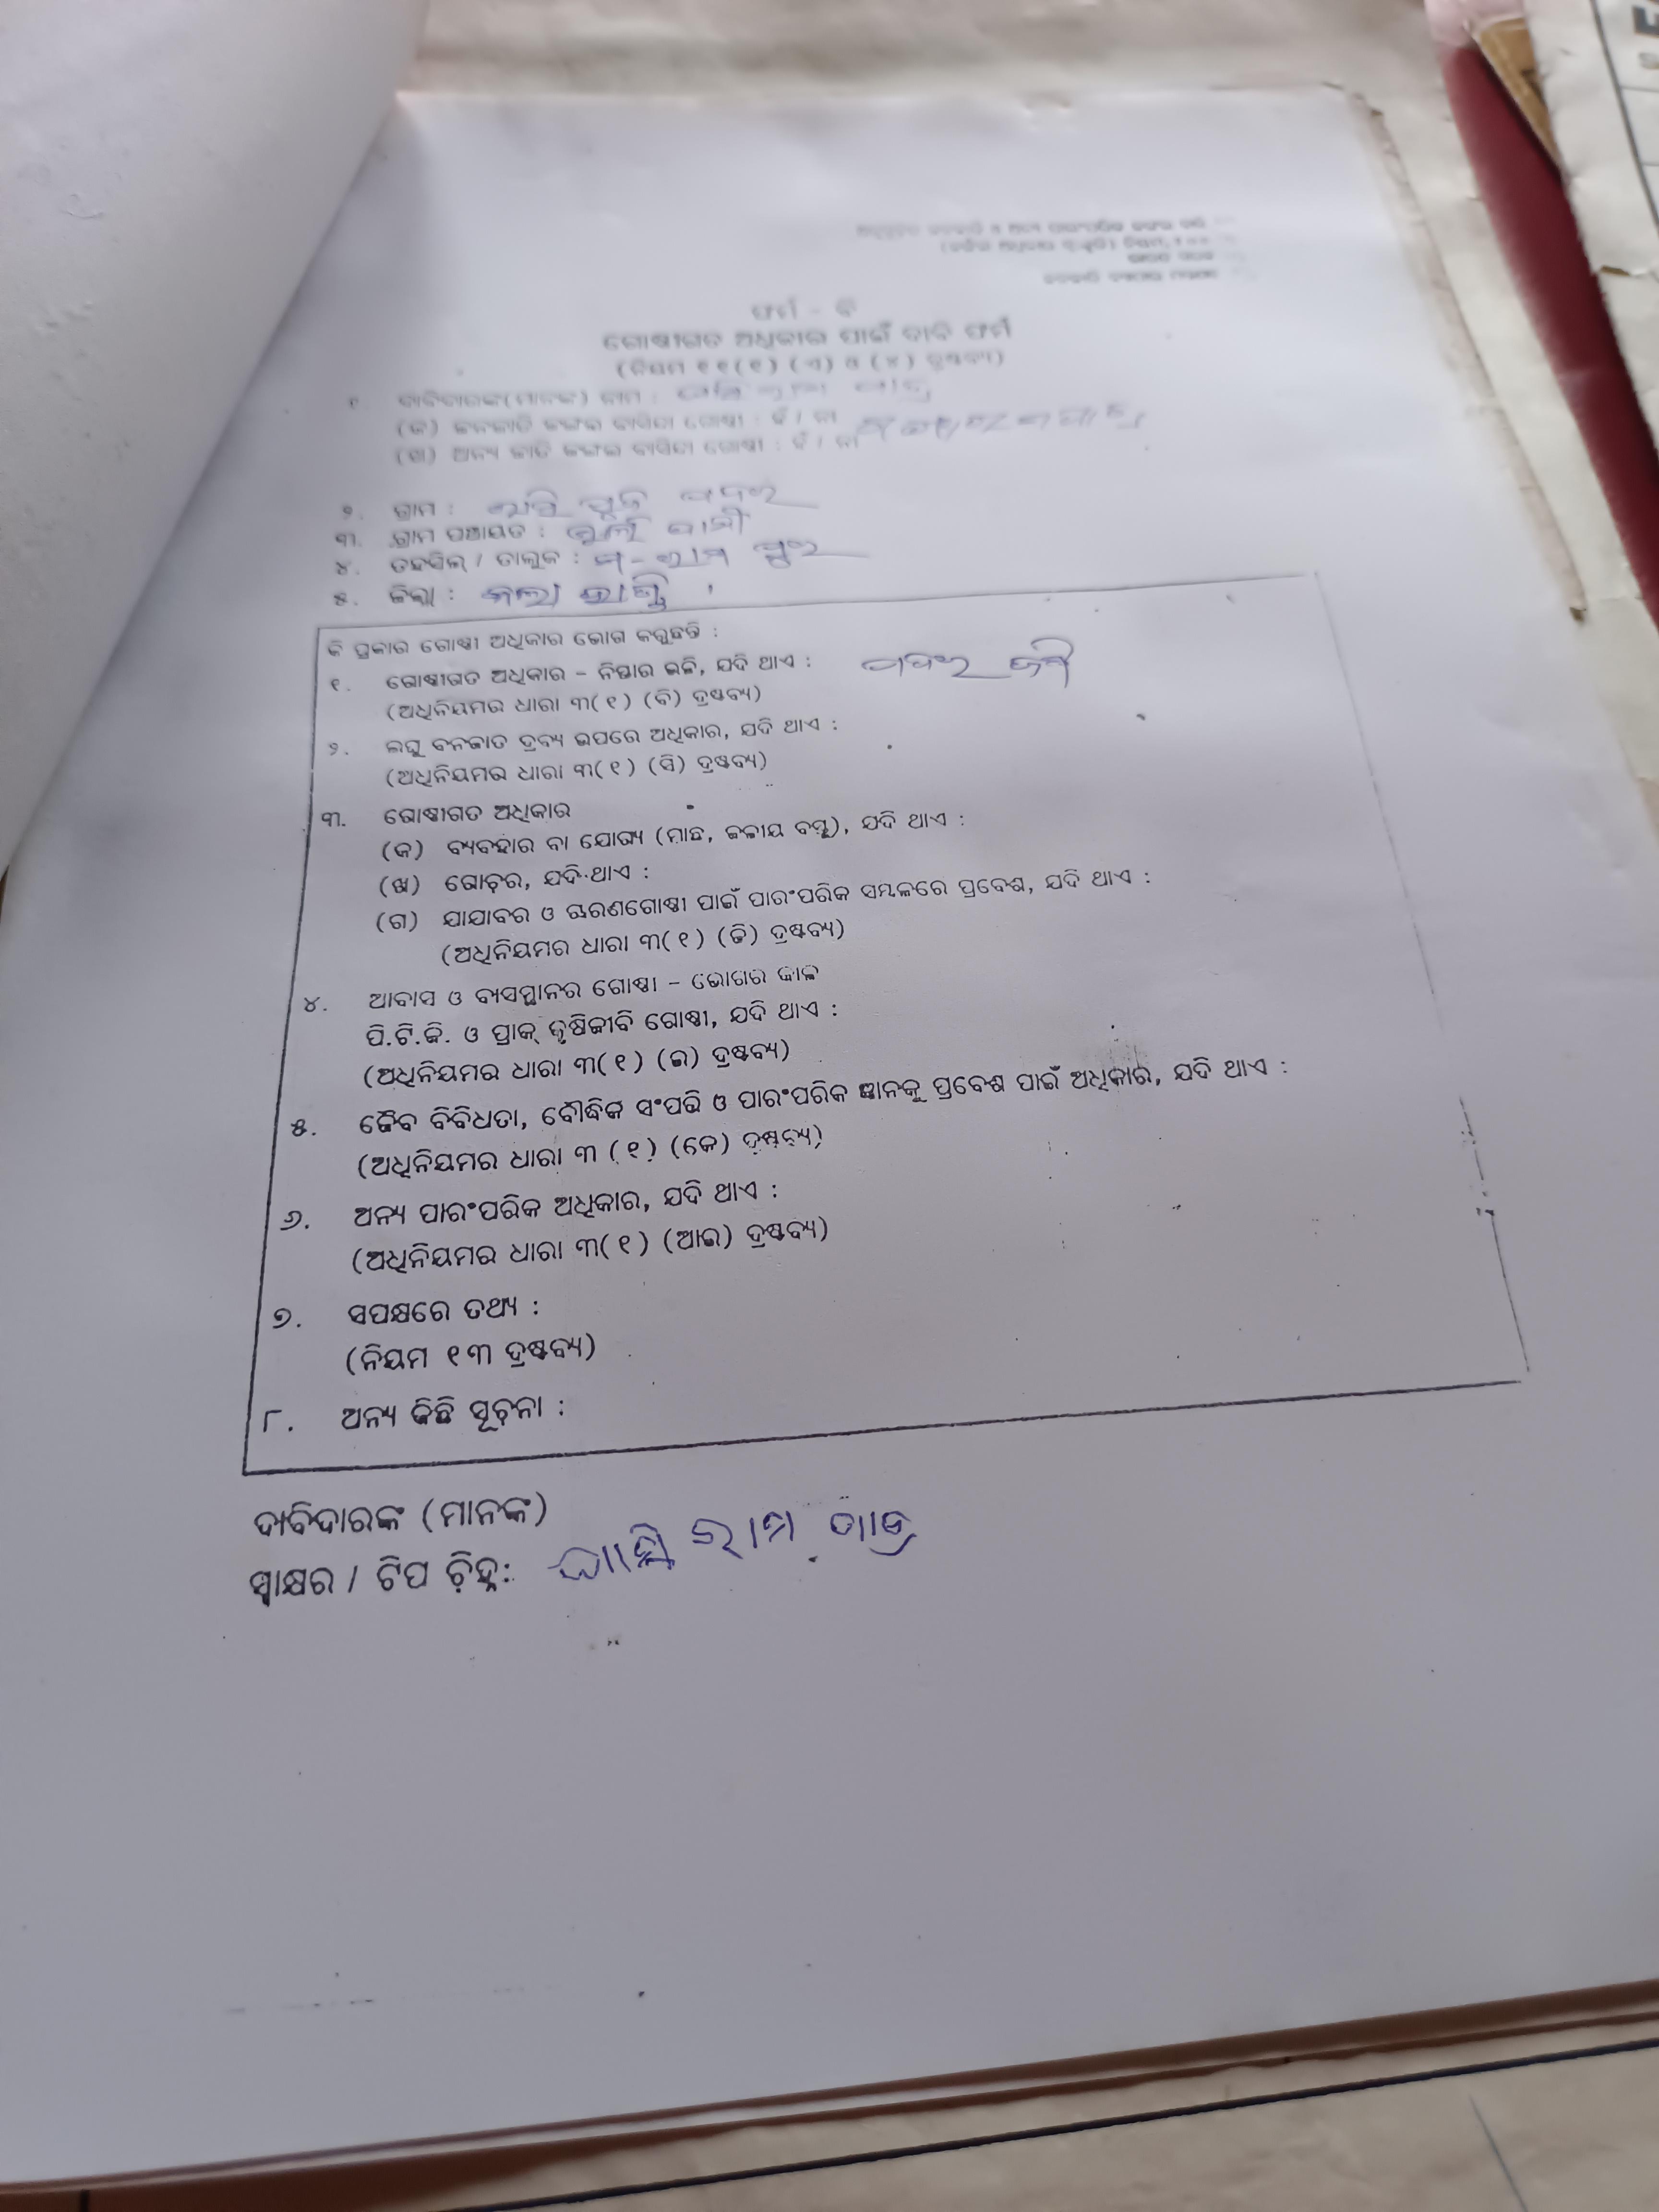 ଫର୍ମ - ବି
ଗୋଷ୍ଠୀଗତ ଅଧିକାର ପାଇଁ ଦାବି ଫର୍ମ
(ନିୟମ ୧୧(୧) (ଏ) ଓ (୪) ଦ୍ରଷ୍ଟବ୍ୟ)
୧. ଦାବିଦାରଙ୍କ(ମାନଙ୍କ) ନାମ :
(କ) ଜନଜାତି ଜଙ୍ଗଲ ବାସିନ୍ଦା ଗୋଷ୍ଠୀ : ହଁ / ନା
(ଖ) ଅନ୍ୟ ଜାତି ଜଙ୍ଗଲ ବାସିନ୍ଦା ଗୋଷ୍ଠୀ : ହଁ / ନା
୨. ଗ୍ରାମ :
୩. ଗ୍ରାମ ପଞ୍ଚାୟତ :
୪. ତହସିଲ୍ / ତାଲୁକ : ମ-ରାମ ପୁର
୫. ଜିଲ୍ଲା : କଲା ହାଣ୍ଡି
କି ପ୍ରକାର ଗୋଷ୍ଠୀ ଅଧିକାର ଭୋଗ କରୁଛନ୍ତି :
୧. ଗୋଷ୍ଠୀଗତ ଅଧିକାର - ନିସ୍ତାର ଭଳି, ଯଦି ଥାଏ :
(ଅଧିନିୟମର ଧାରା ୩(୧) (ବି) ଦ୍ରଷ୍ଟବ୍ୟ)
୨. ଲଘୁ ବନଜାତ ଦ୍ରବ୍ୟ ଉପରେ ଅଧିକାର, ଯଦି ଥାଏ :
(ଅଧିନିୟମର ଧାରା ୩(୧) (ସି) ଦ୍ରଷ୍ଟବ୍ୟ)
୩. ଗୋଷ୍ଠୀଗତ ଅଧିକାର
(କ) ବ୍ୟବହାର ବା ଯୋଗ୍ୟ (ମାଛ, ଜଳୀୟ ବସ୍ତୁ), ଯଦି ଥାଏ :
(ଖ) ଗୋଚ଼ର, ଯଦି ଥାଏ :
(ଗ) ଯାଯାବର ଓ ଚାରଣଗୋଷ୍ଠୀ ପାଇଁ ପାରଂପରିକ ସମ୍ବଳରେ ପ୍ରବେଶ, ଯଦି ଥାଏ :
(ଅଧିନିୟମର ଧାରା ୩(୧) (ଡି) ଦ୍ରଷ୍ଟବ୍ୟ)
୪. ଆବାସ ଓ ବାସସ୍ଥାନର ଗୋଷ୍ଠୀ - ଭୋଗର କାଳ
ପି.ଟି.ଜି. ଓ ପ୍ରାକ୍ କୃଷିଜୀବି ଗୋଷ୍ଠୀ, ଯଦି ଥାଏ :
(ଅଧିନିୟମର ଧାରା ୩(୧) (ଇ) ଦ୍ରଷ୍ଟବ୍ୟ)
୫. ଜୈବ ବିବିଧତା, ବୌଦ୍ଧିକ ସଂପତ୍ତି ଓ ପାରଂପରିକ ଜ୍ଞାନକୁ ପ୍ରବେଶ ପାଇଁ ଅଧିକାର, ଯଦି ଥାଏ :
(ଅଧିନିୟମର ଧାରା ୩ (୧) (କେ) ଦ୍ରଷ୍ଟବ୍ୟ)
୬. ଅନ୍ୟ ପାରଂପରିକ ଅଧିକାର, ଯଦି ଥାଏ :
(ଅଧିନିୟମର ଧାରା ୩(୧) (ଆଇ) ଦ୍ରଷ୍ଟବ୍ୟ)
୭. ସପକ୍ଷରେ ତଥ୍ୟ :
(ନିୟମ ୧୩ ଦ୍ରଷ୍ଟବ୍ୟ)
୮. ଅନ୍ୟ କିଛି ସୂଚ଼ନା :
ଦାବିଦାରଙ୍କ (ମାନଙ୍କ)
ସ୍ଵାକ୍ଷର / ଟିପ ଚ଼ିହ୍ନ: ରାମ ପାତ୍ର